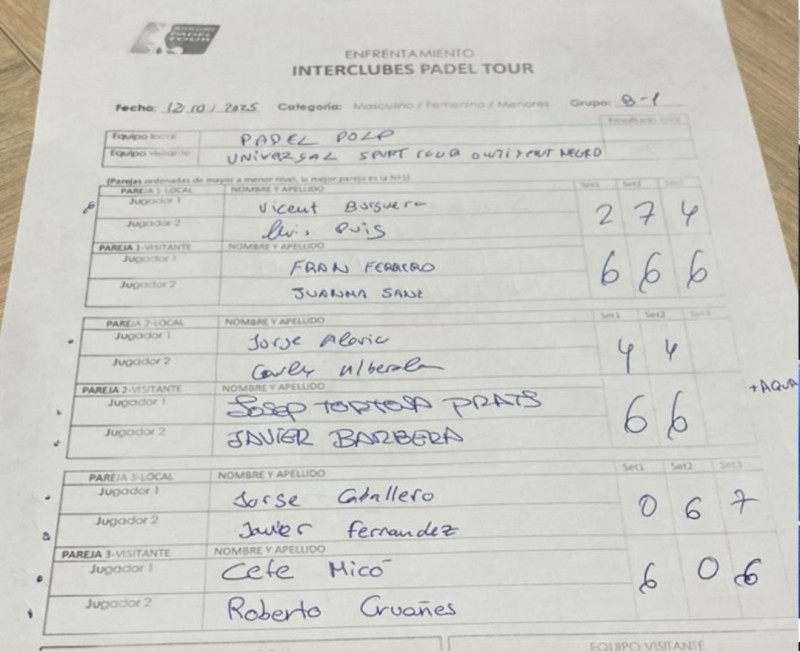 INTERCLUBES
PADEL
TOUR
ENFRENTAMIENTO
INTERCLUBES PADEL TOUR
Fecha: 12/10/2025 Categoria: Masculino / Femenino / Menores Grupo: B-1
Equipo local PADEL POLP
Equipo visitante UNIVERSAL SPORT CLUB ONTINYENT NEGRO
(Parejas ordenadas de mayor a menor nivel, la mejor pareja es la Nº1)
PAREJA 1-LOCAL NOMBRE Y APELLIDO Set1 Set2 Set3
Jugador 1 Vicent Burguera 2 7 4
Jugador 2 Luis Puig
PAREJA 1-VISITANTE NOMBRE Y APELLIDO
Jugador 1 FRAN FERRERO 6 6 6
Jugador 2 JUANMA SANZ
PAREJA 2-LOCAL NOMBRE Y APELLIDO Set1 Set2 Set3
Jugador 1 Jorge 4 4
Jugador 2
PAREJA 2-VISITANTE NOMBRE Y APELLIDO +AQUA
Jugador 1 JOSEP TORTOSA PRATS 6 6
Jugador 2 JAVIER BARBERA
PAREJA 3-LOCAL NOMBRE Y APELLIDO Set1 Set2 Set3
Jugador 1 Jorge Caballero 0 6 7
Jugador 2 Javier Fernandez
PAREJA 3-VISITANTE NOMBRE Y APELLIDO
Jugador 1 Cefe Micó 6 0 6
Jugador 2 Roberto Cruañes
EQUIPO VISITANTE